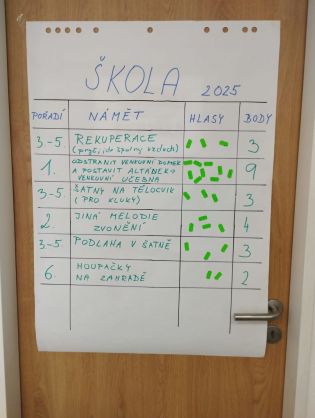 ŠKOLA 2025
POŘADÍ NÁMĚT HLASY BODY
3.-5. REKUPERACE 3
(pryč jde špatný vzduch)
1. ODSTRANIT VENKOVNÍ DOMEK 9
A POSTAVIT ALTÁNEK→
VENKOVNÍ UČEBNA
3.-5. ŠATNY NA TĚLOCVIK 3
(PRO KLUKY)
2. JINÁ MELODIE 4
ZVONĚNÍ
3.-5. PODLAHA V ŠATNĚ 3
6. HOUPAČKY 2
NA ZAHRADĚ